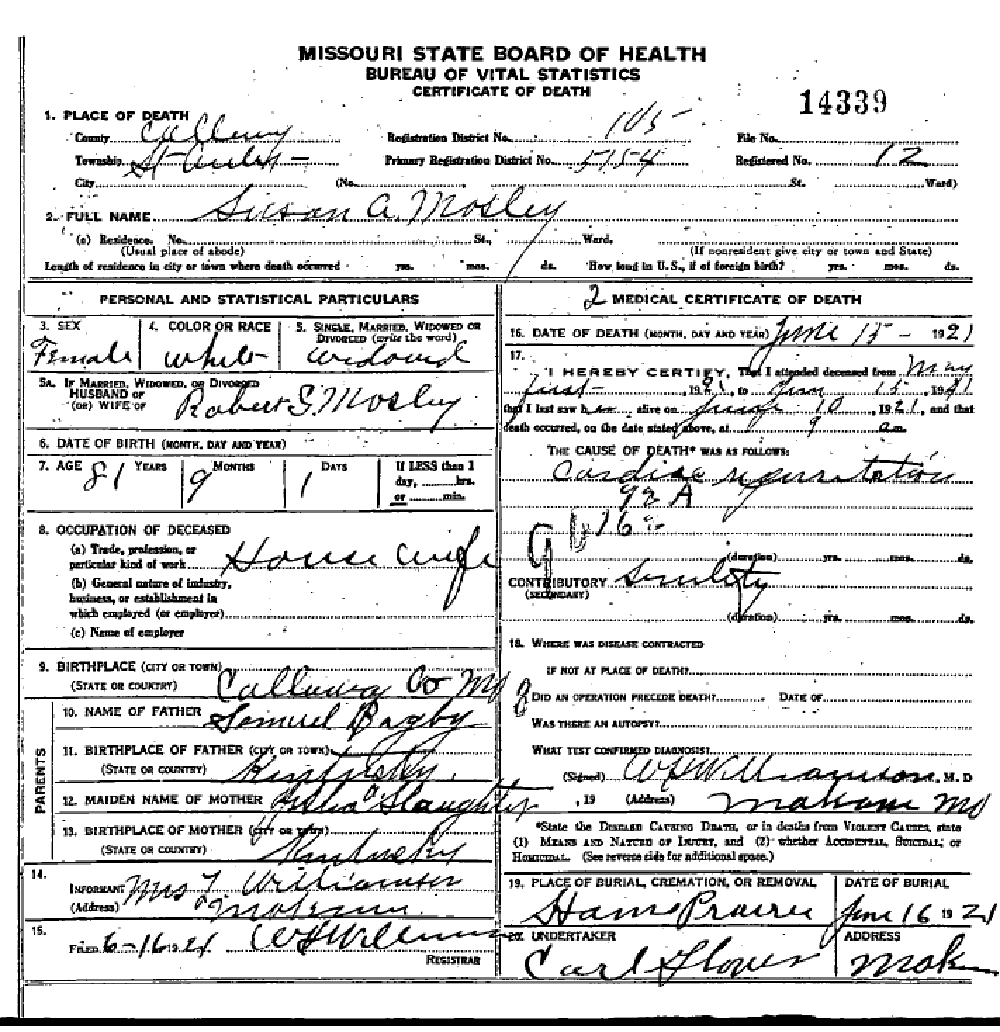 MISSOURI STATE BOARD OF HEALTH
BUREAU OF VITAL STATISTICS
CERTIFICATE OF DEATH
14339
1. PLACE OF DEATH
County Registration District No. 105 File No.
Township Primary Registration District No. 5754 Registered No. 12
City (No. St. Ward)
2. FULL NAME Susan A. Mosley
(a) Residence. No. St., Ward,
(Usual place of abode) (If nonresident give city or town and State)
Length of residence in city or town where death occurred yrs. mos. ds. How long in U.S., if of foreign birth? yrs. mos. ds.
PERSONAL AND STATISTICAL PARTICULARS
3. SEX 4. COLOR OR RACE 5. SINGLE, MARRIED, WIDOWED OR
DIVORCED (write the word)
Female White Widowed
5A. IF MARRIED, WIDOWED, OR DIVORCED
HUSBAND OF
(OR) WIFE OF Robert S. Mosley
6. DATE OF BIRTH (MONTH, DAY AND YEAR)
7. AGE 81 YEARS 9 MONTHS 1 DAYS If LESS than 1
day, hrs.
or min.
8. OCCUPATION OF DECEASED
(a) Trade, profession, or
particular kind of work House wife
(b) General nature of industry,
business, or establishment in
which employed (or employer)
(c) Name of employer
9. BIRTHPLACE (CITY OR TOWN)
(STATE OR COUNTRY) Callaway Co Mo
PARENTS
10. NAME OF FATHER Samuel Bagby
11. BIRTHPLACE OF FATHER (CITY OR TOWN)
(STATE OR COUNTRY) Kentucky
12. MAIDEN NAME OF MOTHER Slaughter
13. BIRTHPLACE OF MOTHER (CITY OR TOWN)
(STATE OR COUNTRY) Kentucky
14.
INFORMANT Mrs Williamson
(Address) Mokane
15.
FILED 6-16 1921
REGISTRAR
2 MEDICAL CERTIFICATE OF DEATH
16. DATE OF DEATH (MONTH, DAY AND YEAR) June 15 - 1921
17.
I HEREBY CERTIFY, That I attended deceased from May
first, 1921, to Jun 15, 1921
that I last saw her alive on June 10, 1921, and that
death occurred, on the date stated above, at 9 am.
THE CAUSE OF DEATH* WAS AS FOLLOWS:
Cardiac regurgitation
92 A
(duration) yrs. mos. ds.
CONTRIBUTORY Senility
(SECONDARY)
(duration) yrs. mos. ds.
18. WHERE WAS DISEASE CONTRACTED
IF NOT AT PLACE OF DEATH?
8 DID AN OPERATION PRECEDE DEATH? DATE OF
WAS THERE AN AUTOPSY?
WHAT TEST CONFIRMED DIAGNOSIS?
(Signed) Williamson, M. D
, 19 (Address) Mokane Mo
*State the DISEASE CAUSING DEATH, or in deaths from VIOLENT CAUSES, state
(1) MEANS AND NATURE OF INJURY, and (2) whether ACCIDENTAL, SUICIDAL, or
HOMICIDAL. (See reverse side for additional space.)
19. PLACE OF BURIAL, CREMATION, OR REMOVAL DATE OF BURIAL
Hams Prairie June 16 1921
20. UNDERTAKER ADDRESS
Carl Glover Mok